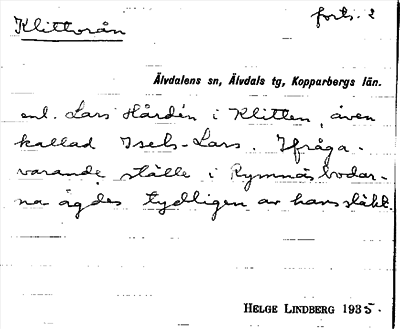 Klittorån
forts. 2
Älvdalens sn, Älvdals tg, Kopparbergs län.
enl. Lars Hårdén i Klitten, även
kallad Isels-Lars. Ifråga-
varande ställe i Rymnäsbodar-
na ägdes tydligen av hans släkt.
HELGE LINDBERG 1935.